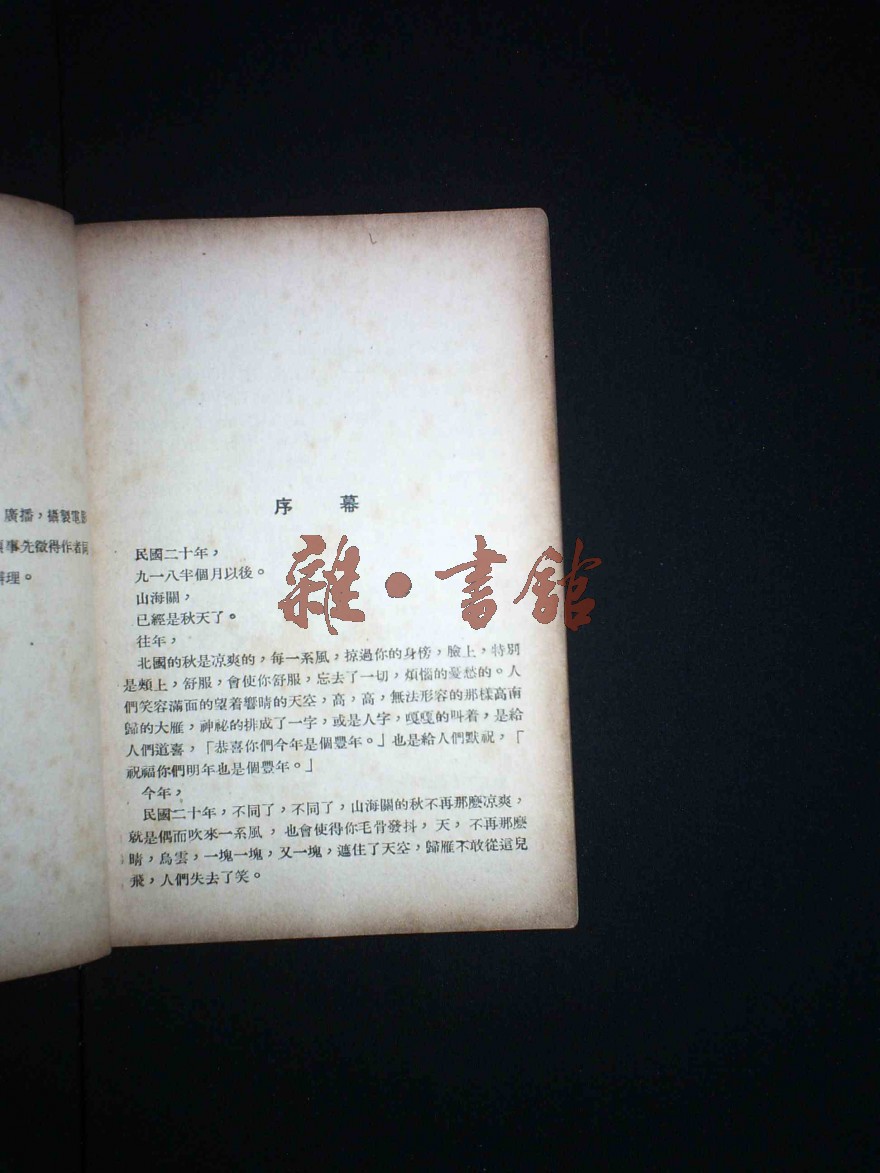 廣播，攝製電影
事先徵得作者同
理。
序 幕
民國二十年，
九一八半個月以後。
山海關，
已經是秋天了。
往年，
北國的秋是凉爽的，每一系風，掠過你的身傍，臉上，特別
是頰上，舒服，會使你舒服，忘去了一切，煩惱的憂愁的。人
們笑容滿面的望着響晴的天空，高，高，無法形容的那樣高南
歸的大雁，神祕的排成了一字，或是人字，嘎嘎的叫着，是給
人們道喜，「恭喜你們今年是個豐年。」也是給人們默祝，「
祝福你們明年也是個豐年。」
今年，
民國二十年，不同了，不同了，山海關的秋不再那麽凉爽，
就是偶而吹來一系風，也會使得你毛骨發抖，天，不再那麽
晴，烏雲，一塊一塊，又一塊，遮住了天空，歸雁不敢從這兒
飛，人們失去了笑。
雜·書館